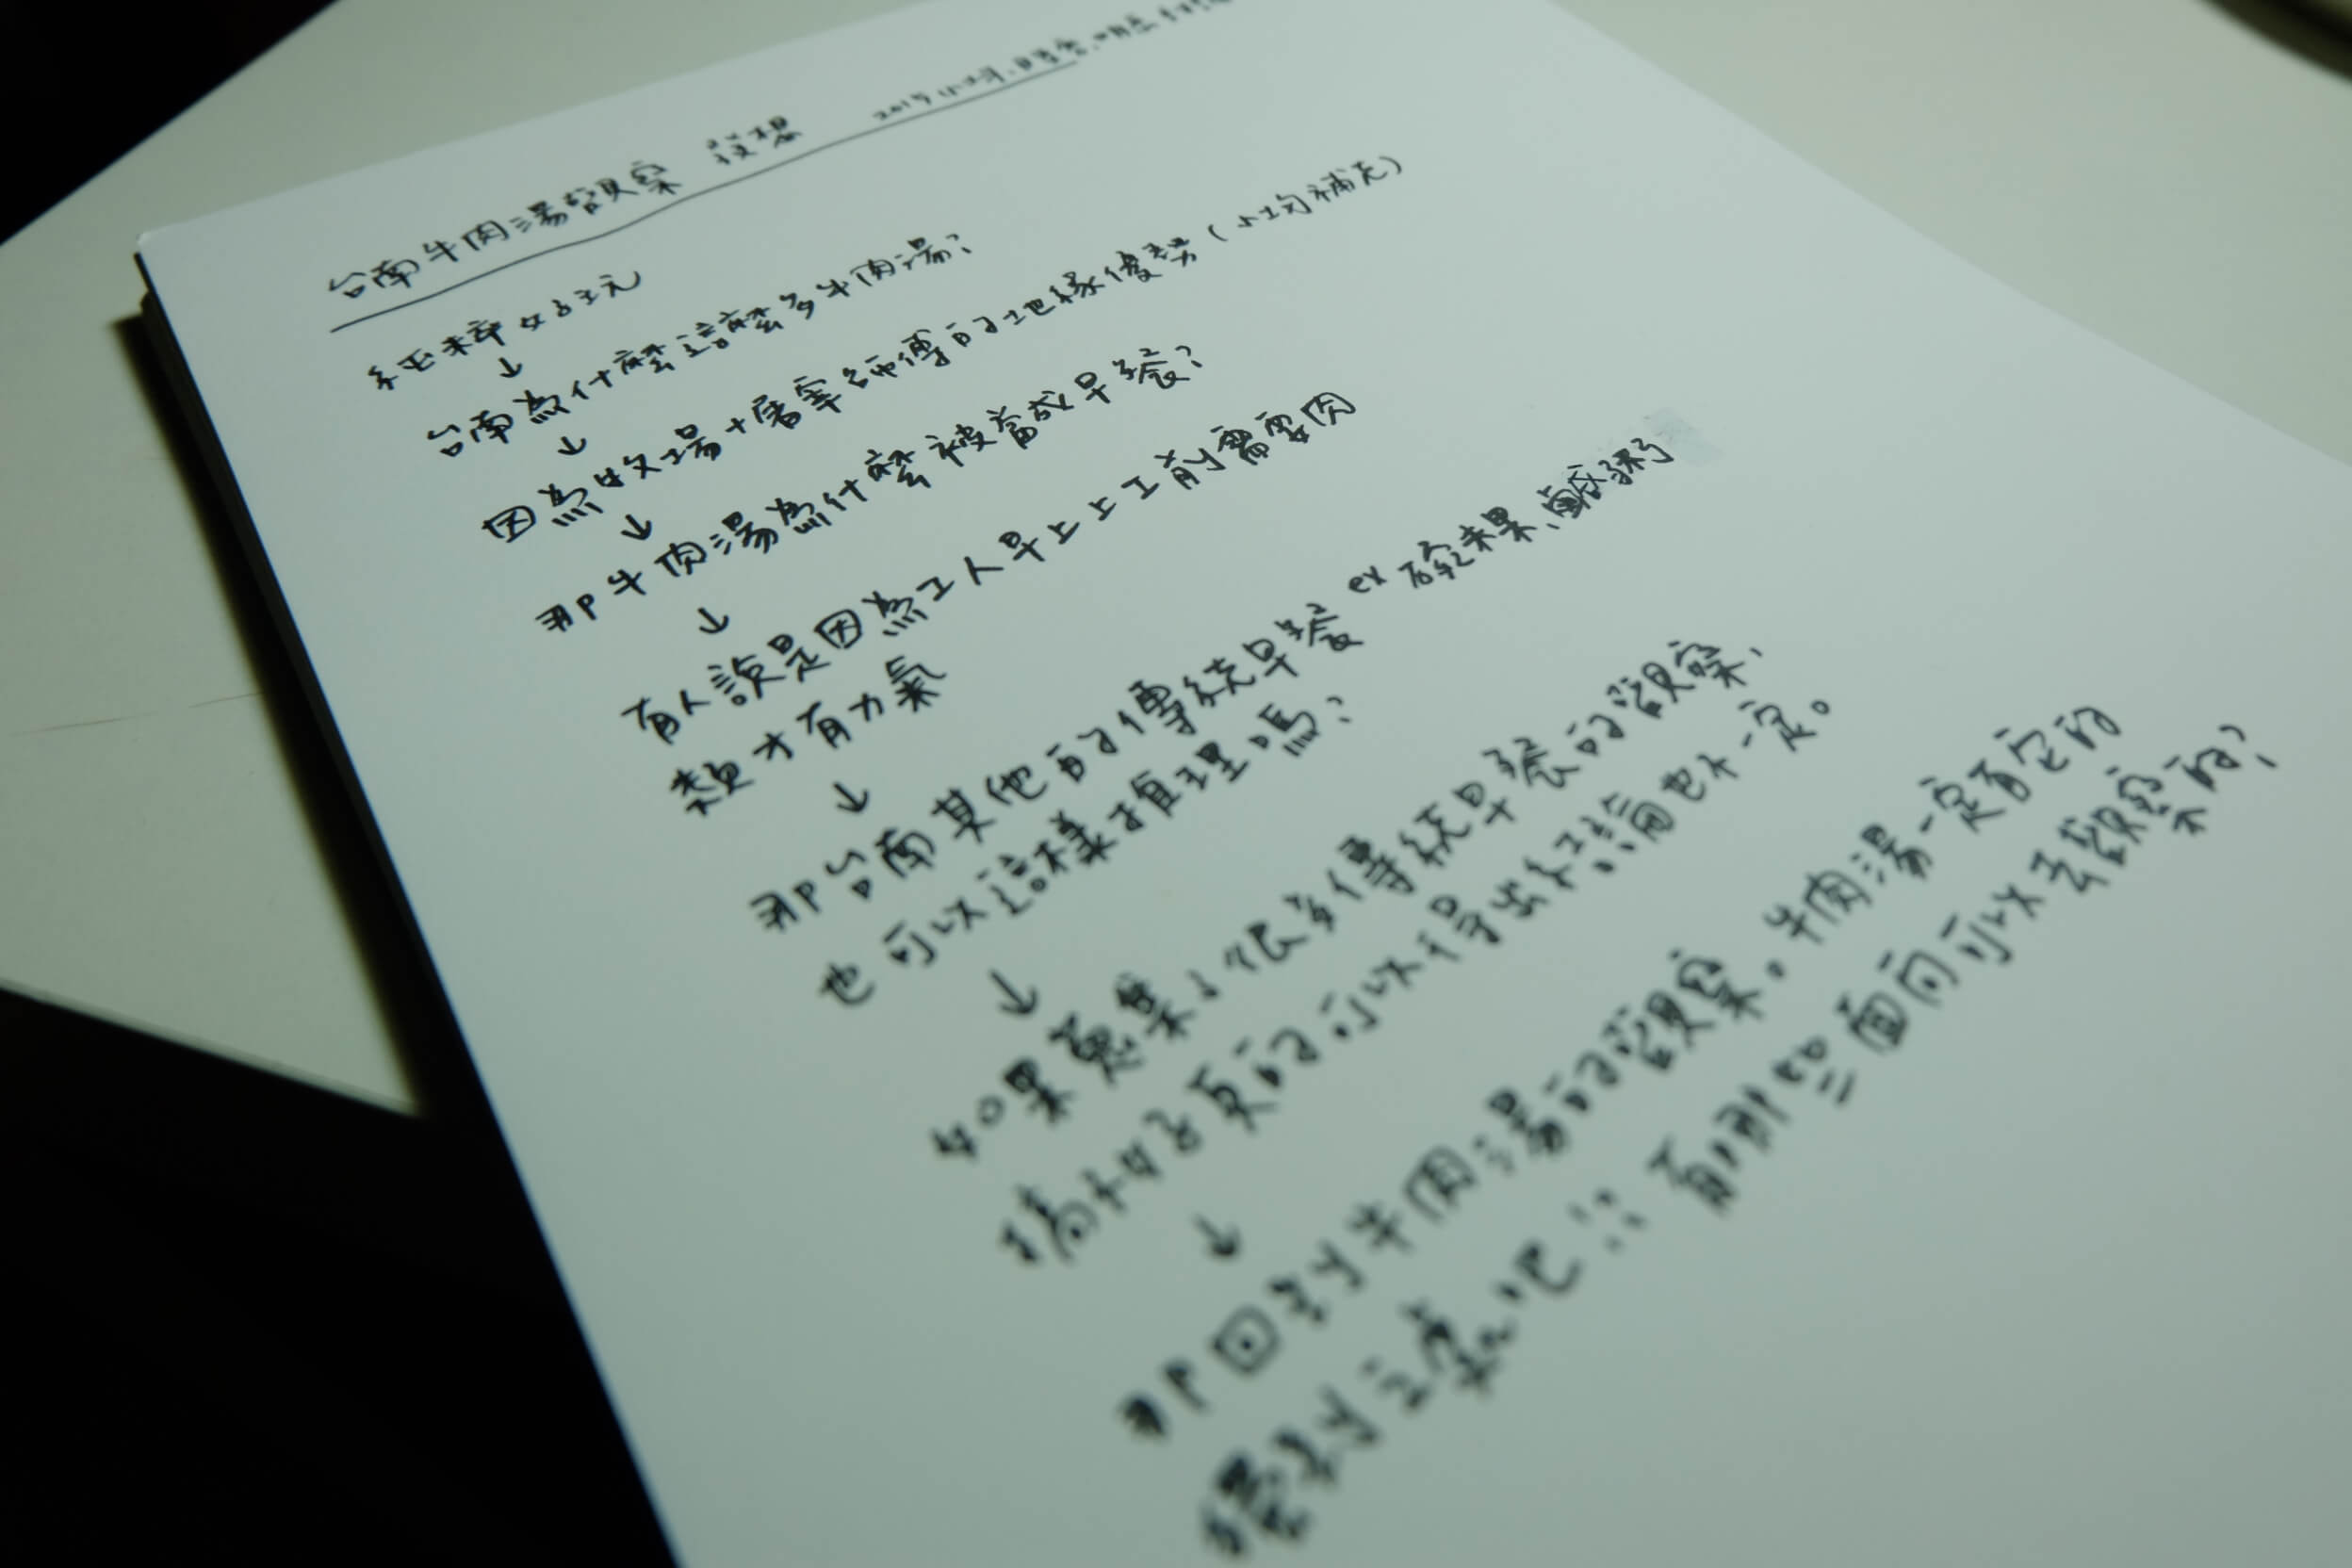 台南牛肉湯觀察 設想 2015
純粹好玩
↓
台南為什麼這麼多牛肉湯?
↓
因為牧場+屠宰師傅的地緣優勢(小均補充)
↓
那牛肉湯為什麼被當成早餐?
↓
有人說是因為工人早上上工前需要肉
類才有力氣
↓
那台南其他的傳統早餐 ex 碗粿、鹹粥
也可以這樣推理嗎?
↓
如果蒐集了很多傳統早餐的觀察、
搞不好真的可以得出結論也不一定。
↓
那回到牛肉湯的觀察。牛肉湯一定有它的
優勢 吧!!! 有哪些面向可以去觀察的?